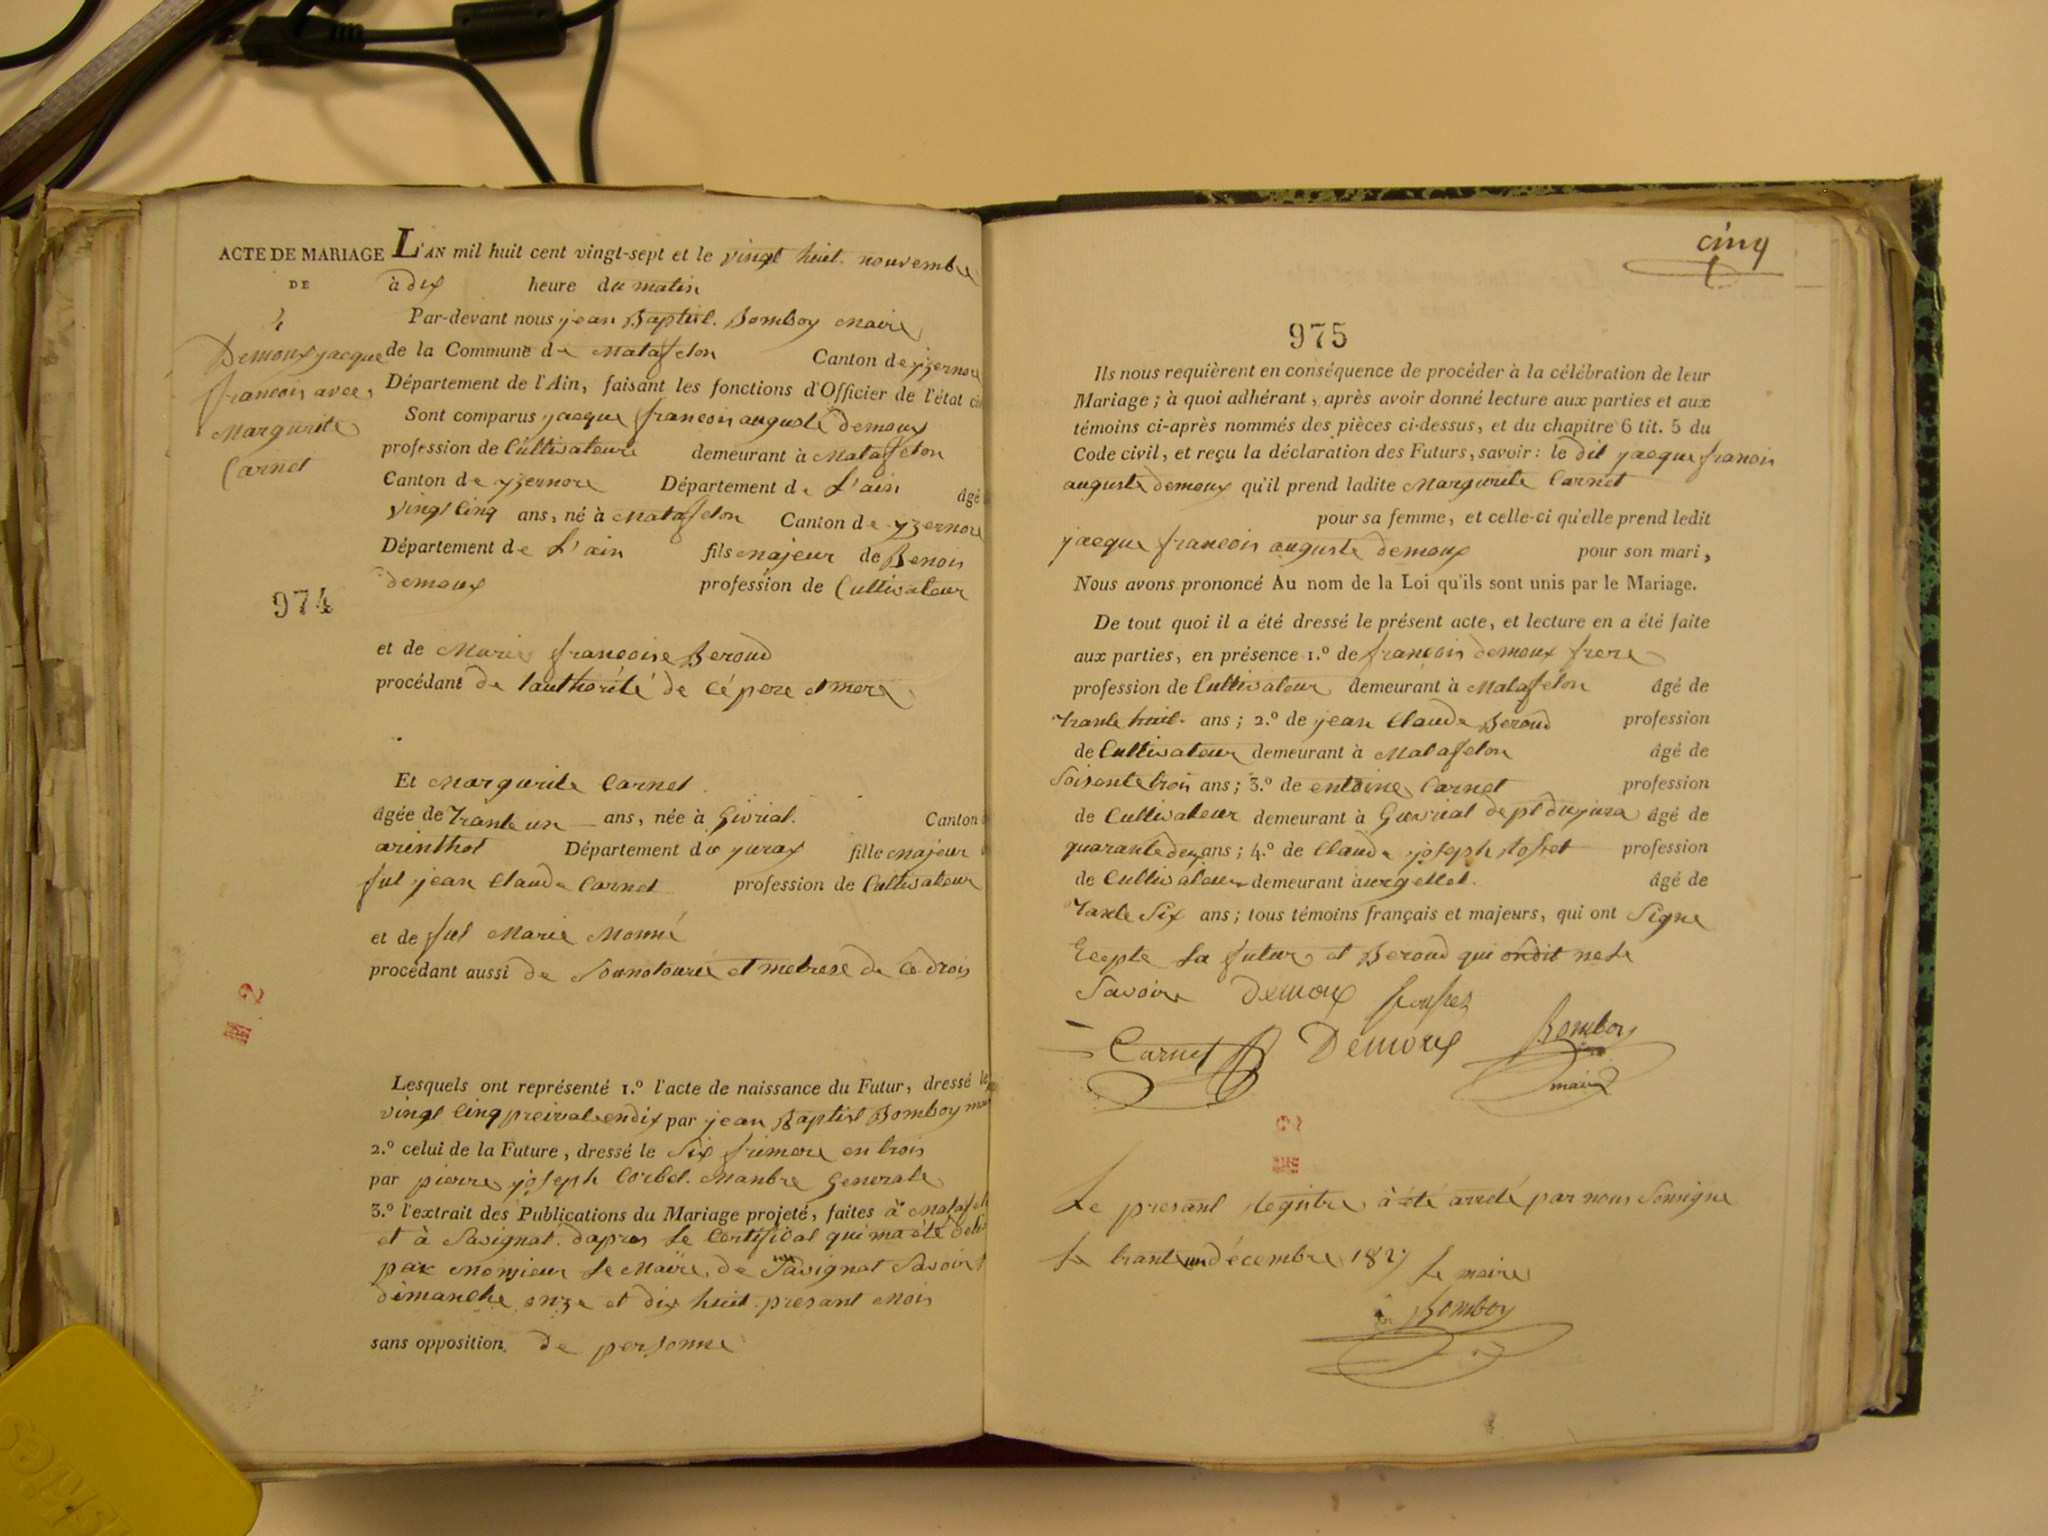 ACTE DE MARIAGE
DE
4
Demoux jacque
francois avec
Margurite
Carnet
974
L'AN mil huit cent vingt-sept et le vingt huit nouvembre
à dix heure du matin
Par-devant nous jean Baptist Bomboy Maire
de la Commune de Matafelon Canton de yzernore
Département de l'Ain, faisant les fonctions d'Officier de l'état
Sont comparus jacque francois auguste demoux
profession de Cultivateure demeurant à Matafelon
Canton de yzernore Département de L'ain âgé
vingt cinq ans, né à Matafelon Canton de yzernore
Département de L'ain fils majeur de Benois
demoux profession de Cultivateur
et de Marie françoise Beroud
procédant de lauthorité de cé pere et mere
Et Margurite Carnet
âgée de Trante un ans, née à Givriat Canton
arinthot Département du jurax fille majeur
fut jean Claude Carnet profession de Cultivateur
et de fut Marie Monné
procédant aussi de et metrese de Cé drois
Lesquels ont représenté 1.º l'acte de naissance du Futur, dressé le
vingt cinq preival endix par jean Baptist Bomboy
2.º celui de la Future, dressé le six frimere en trois
par pierre joseph Corbet Manbre Generale
3.º l'extrait des Publications du Mariage projeté, faites à
et à Savignat dapres Le Certificat qui ma été
par Monsieur Le Maire de Savignat Savoir
dimanche onze et dix huit presant Mois
sans opposition de personne
cinq
975
Ils nous requièrent en conséquence de procéder à la célébration de leur
Mariage; à quoi adhérant, après avoir donné lecture aux parties et aux
témoins ci-après nommés des pièces ci-dessus, et du chapitre 6 tit. 5 du
Code civil, et reçu la déclaration des Futurs, savoir: le dit jacque francois
auguste demoux qu'il prend ladite Margurite Carnet
pour sa femme, et celle-ci qu'elle prend ledit
jacque francois auguste demoux pour son mari,
Nous avons prononcé Au nom de la Loi qu'ils sont unis par le Mariage.
De tout quoi il a été dressé le présent acte, et lecture en a été faite
aux parties, en présence 1.º de françois demoux frere
profession de Cultivateur demeurant à Matafelon âgé de
Trante huit ans; 2.º de jean Claude Beroud profession
de Cultivateur demeurant à Matafelon âgé de
Soisente trois ans; 3.º de entoine Carnet profession
de Cultivateur demeurant à dept du jura âgé de
quarante deux ans; 4.º de Claude joseph profession
de Cultivateur demeurant à urgellet âgé de
Trante Six ans; tous témoins français et majeurs, qui ont Signe
Ecepte La future et Beroud qui ondit ne Le
Savoire Demoux
Carnet Démoux Bomboy
maire
Le presant Registre à été areté par nous Sousigne
Le trante un décembre 1827
Le maire
Bomboy